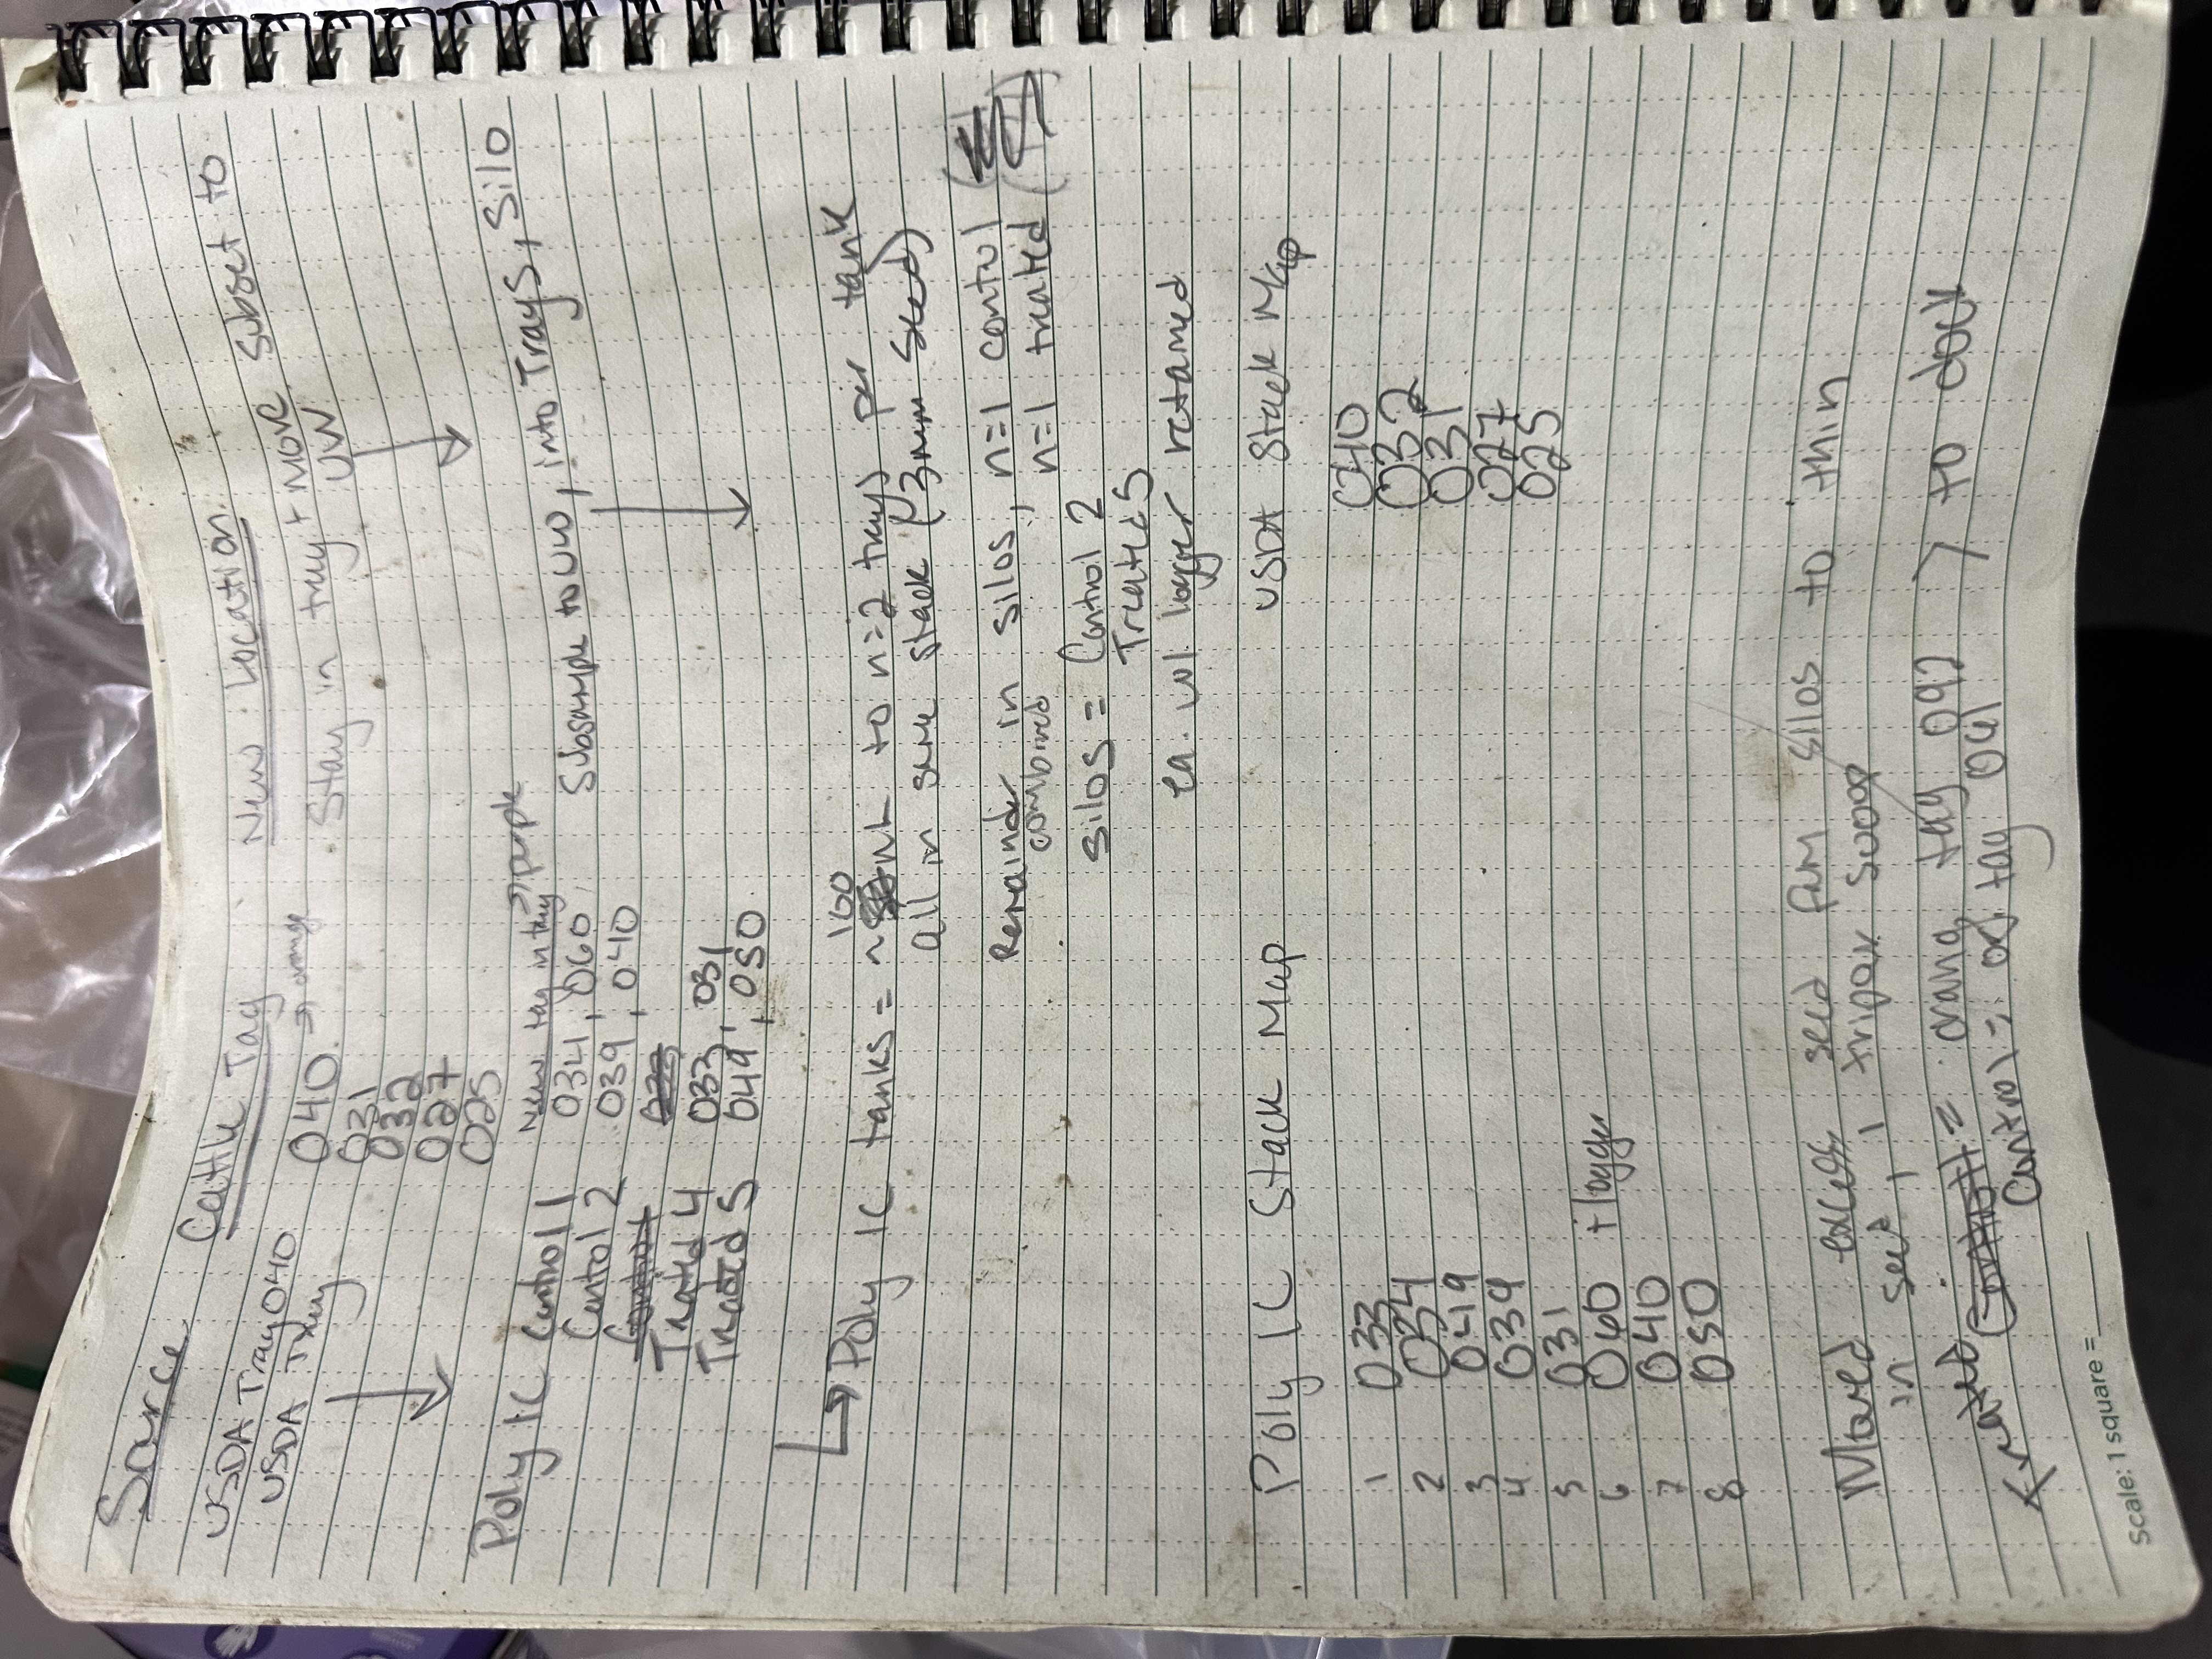 Source Cattle Tag New Location
USDA Tray 040 040 → orange Stay in tray + move subset to UW
USDA Tray 031
032
027
025
Poly IC New tag in tray → purple
Control 1 034, 060 Subsample to UW, into Trays, Silo
Control 2 039, 040
Control 033
Treated 4 033, 031
Treated 5 049, 050
100
Poly IC tanks = ~ mL to n=2 trays per tank
all in same stack (3mm seed)
Remainder in silos, n=1 control
combined n=1 treated
silos = Control 2
Treated 5
ea. w/ logger retained
Poly IC Stack Map USDA Stack Map
1 033 040
2 034 032
3 049 031
4 039 027
5 031 025
6 060 + logger
7 040
8 050
Moved excess seed from silos to thin
in sect, 1 tripour scoop
Treated Control = orang tag 092 > to dock
Control = og tag 061
Scale: 1 square =